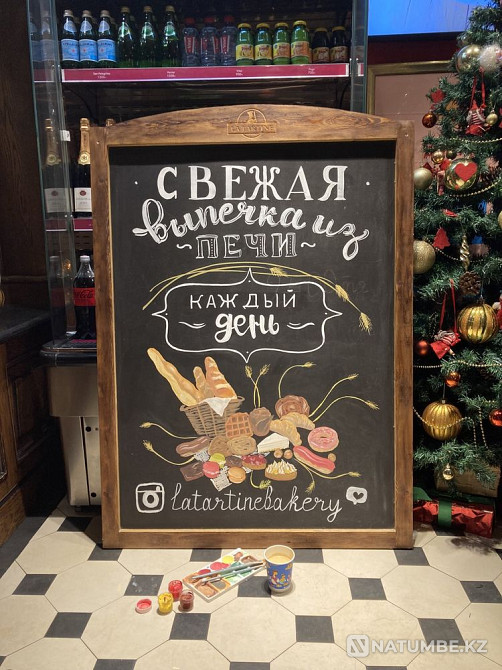 СВЕЖАЯ
выпечка из
~ПЕЧИ~
КАЖДЫЙ
день
latartinebakery
NATUMBE.KZ